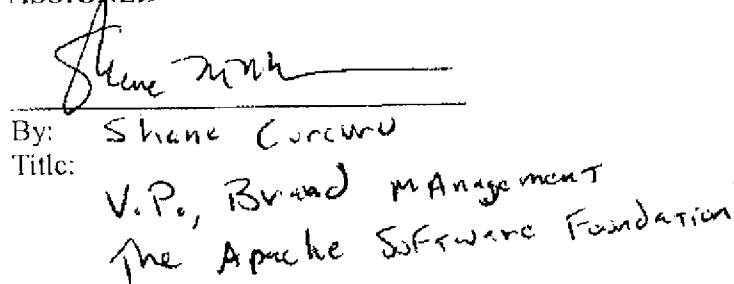 Shane
By: Shane Curcuru
Title:
V.P., Brand Management
The Apache Software Foundation